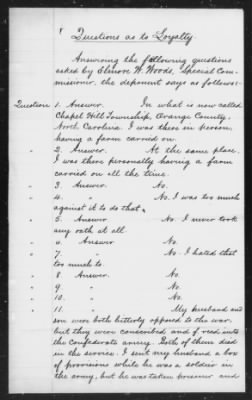 Questions as to Loyalty
Answering the following questions
asked by Elmore W. Woods, Special Com-
missioner, the deponent says as follows:
Question 1. Answer. In what is now called
Chapel Hill Township, Orange County,
North Carolina. I was there in person,
having a farm carried on.
" 2. Answer. At the same place
I was there personally having a farm
carried on all the time.
" 3. Answer. No.
" 4. " No. I was too much
against it to do that.
" 5. Answer No. I never took
any oath at all.
" 6. Answer No.
" 7. " No. I hated that
too much to.
" 8 Answer. No.
" 9. " No.
" 10. " No.
" 11. " My husband and
son were both bitterly opposed to the war,
but they were conscribed and forced into
the Confederate army. Both of them died
in the service. I sent my husband a box
of provisions while he was a soldier in
the army, but he was taken prisoner and